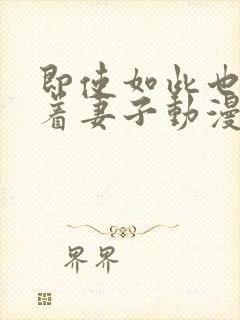 即使如此也
着妻子動漫
界界